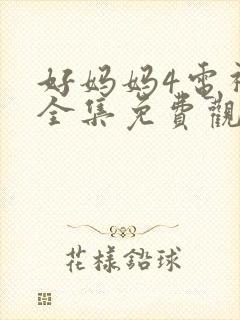 好妈妈4电视
全集免費觀
花樣鉛球